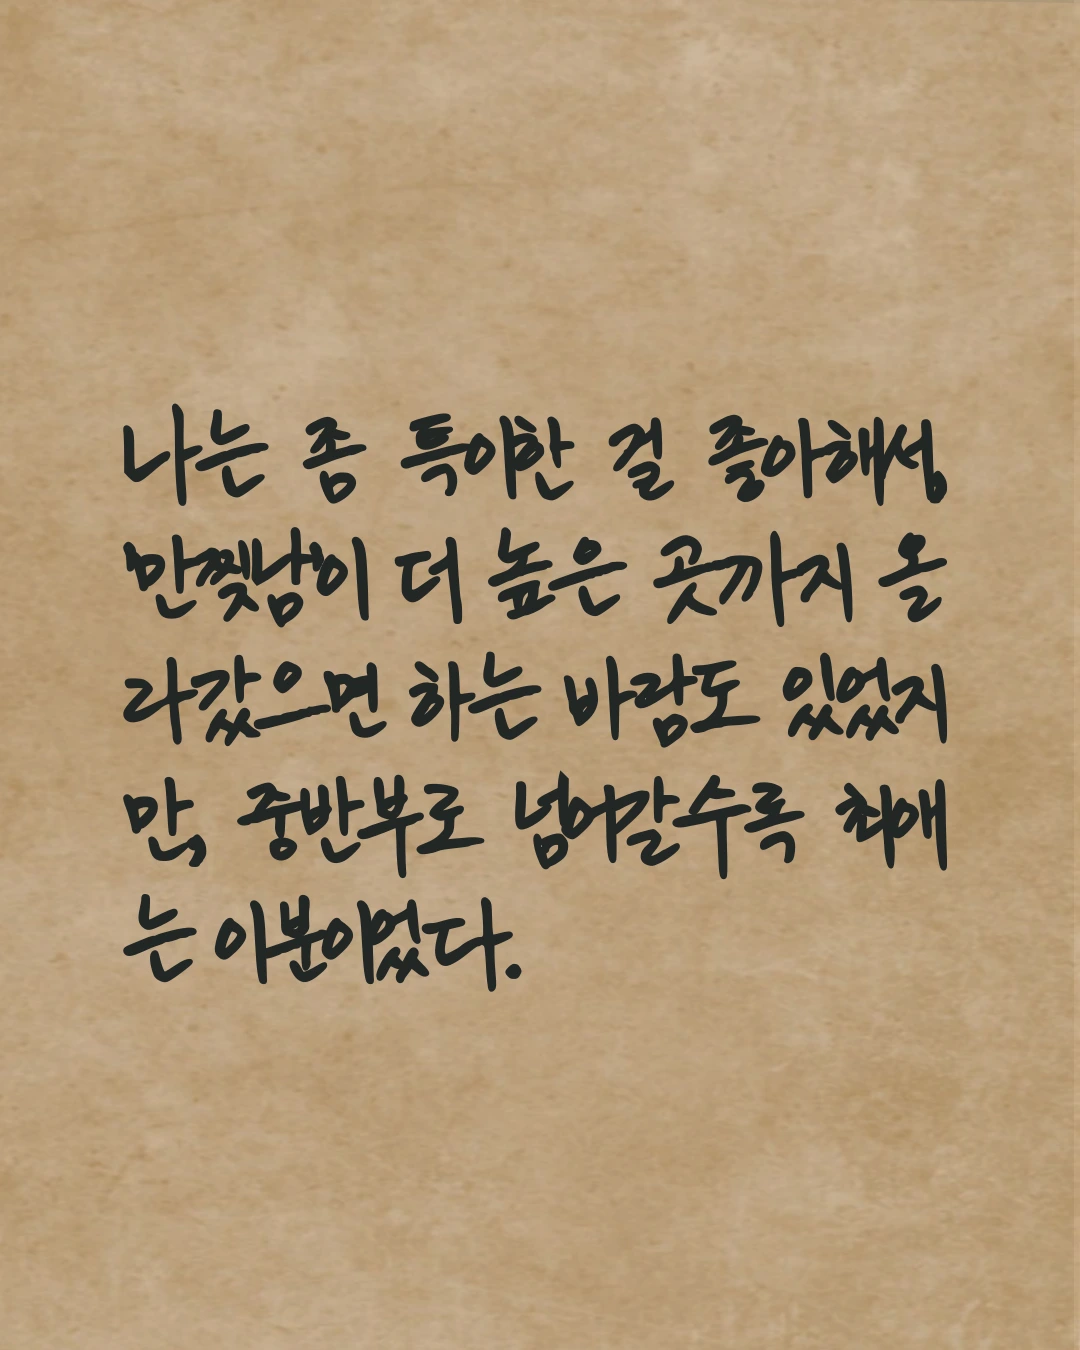 나는 좀 특이한 걸 좋아해서,
'만찢남'이 더 높은 곳까지 올
라갔으면 하는 바람도 있었지
만, 중반부로 넘어갈수록 최애
는 이분이었다.